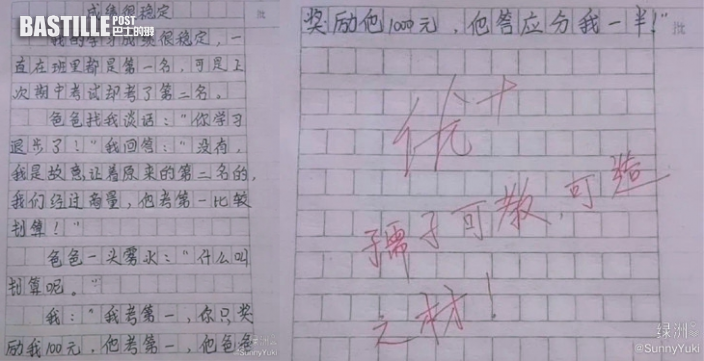 BASTILLE POST
巴士的報
成绩很稳定
批
我的学习成绩很稳定，一
直在班里都是第一名，可是上
次期中考试却考了第二名。
爸爸找我谈话：“你学习
退步了！”我回答：“没有，
我是故意让着原来的第二名的，
我们经过商量，他考第一比较
划算！”
爸爸一头雾水：“什么叫
划算呢。”
我：“我考第一，你只奖
励我100元，他考第一，他爸爸
奖励他1000元，他答应分我一半！”
批
优+
孺子可教，可造
之材！
绿洲
@SunnyYuki
绿洲
@SunnyYuki